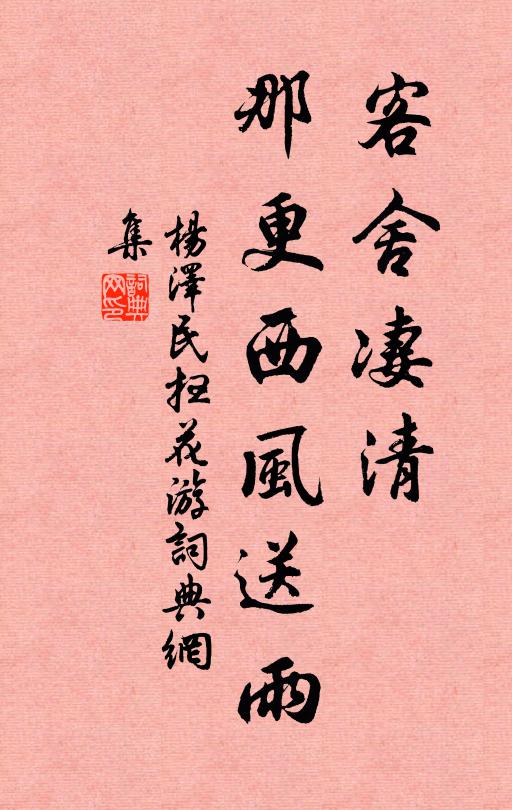 客舍凄清
那更西風送雨
楊澤民掃花游詞典網
集
詞典網印